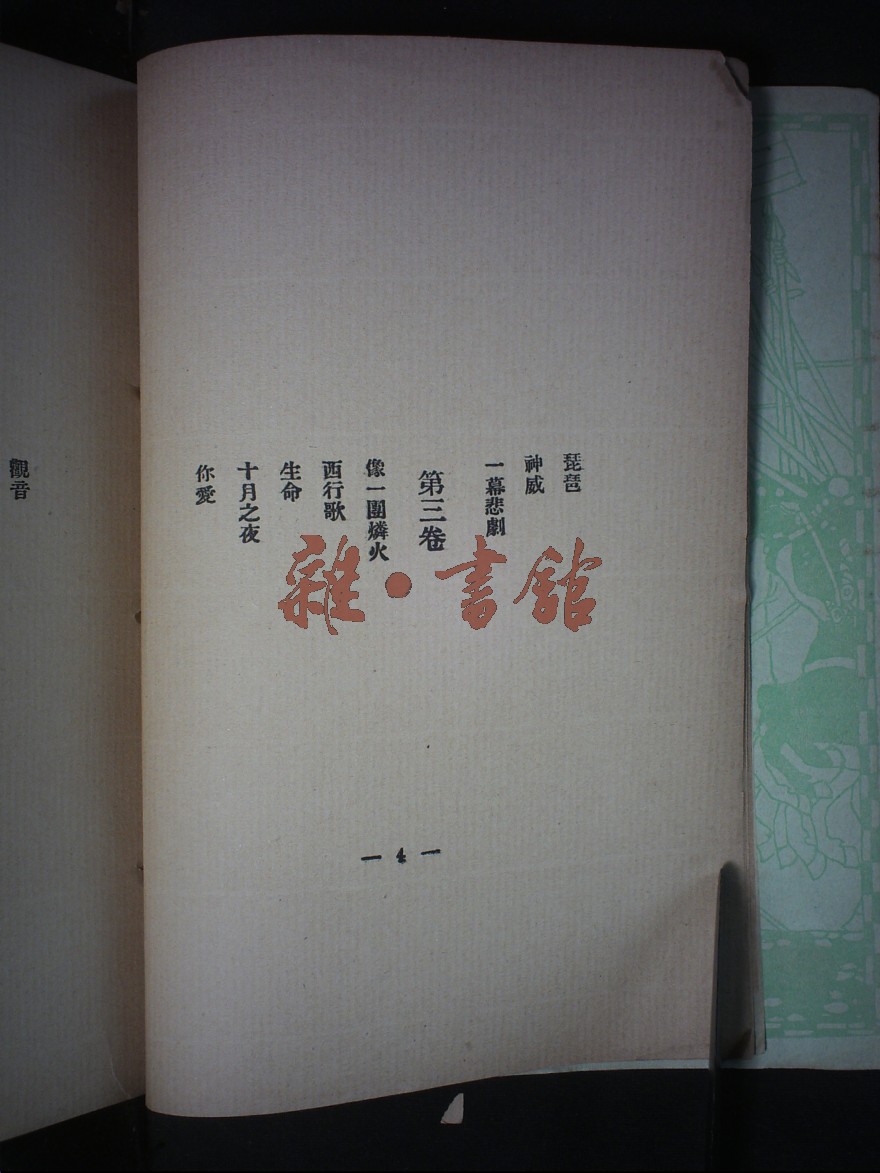 琵琶
神威
一幕悲劇
第三卷
像一團燐火
西行歌
生命
十月之夜
你愛
— 4 —
觀音
雜·書館